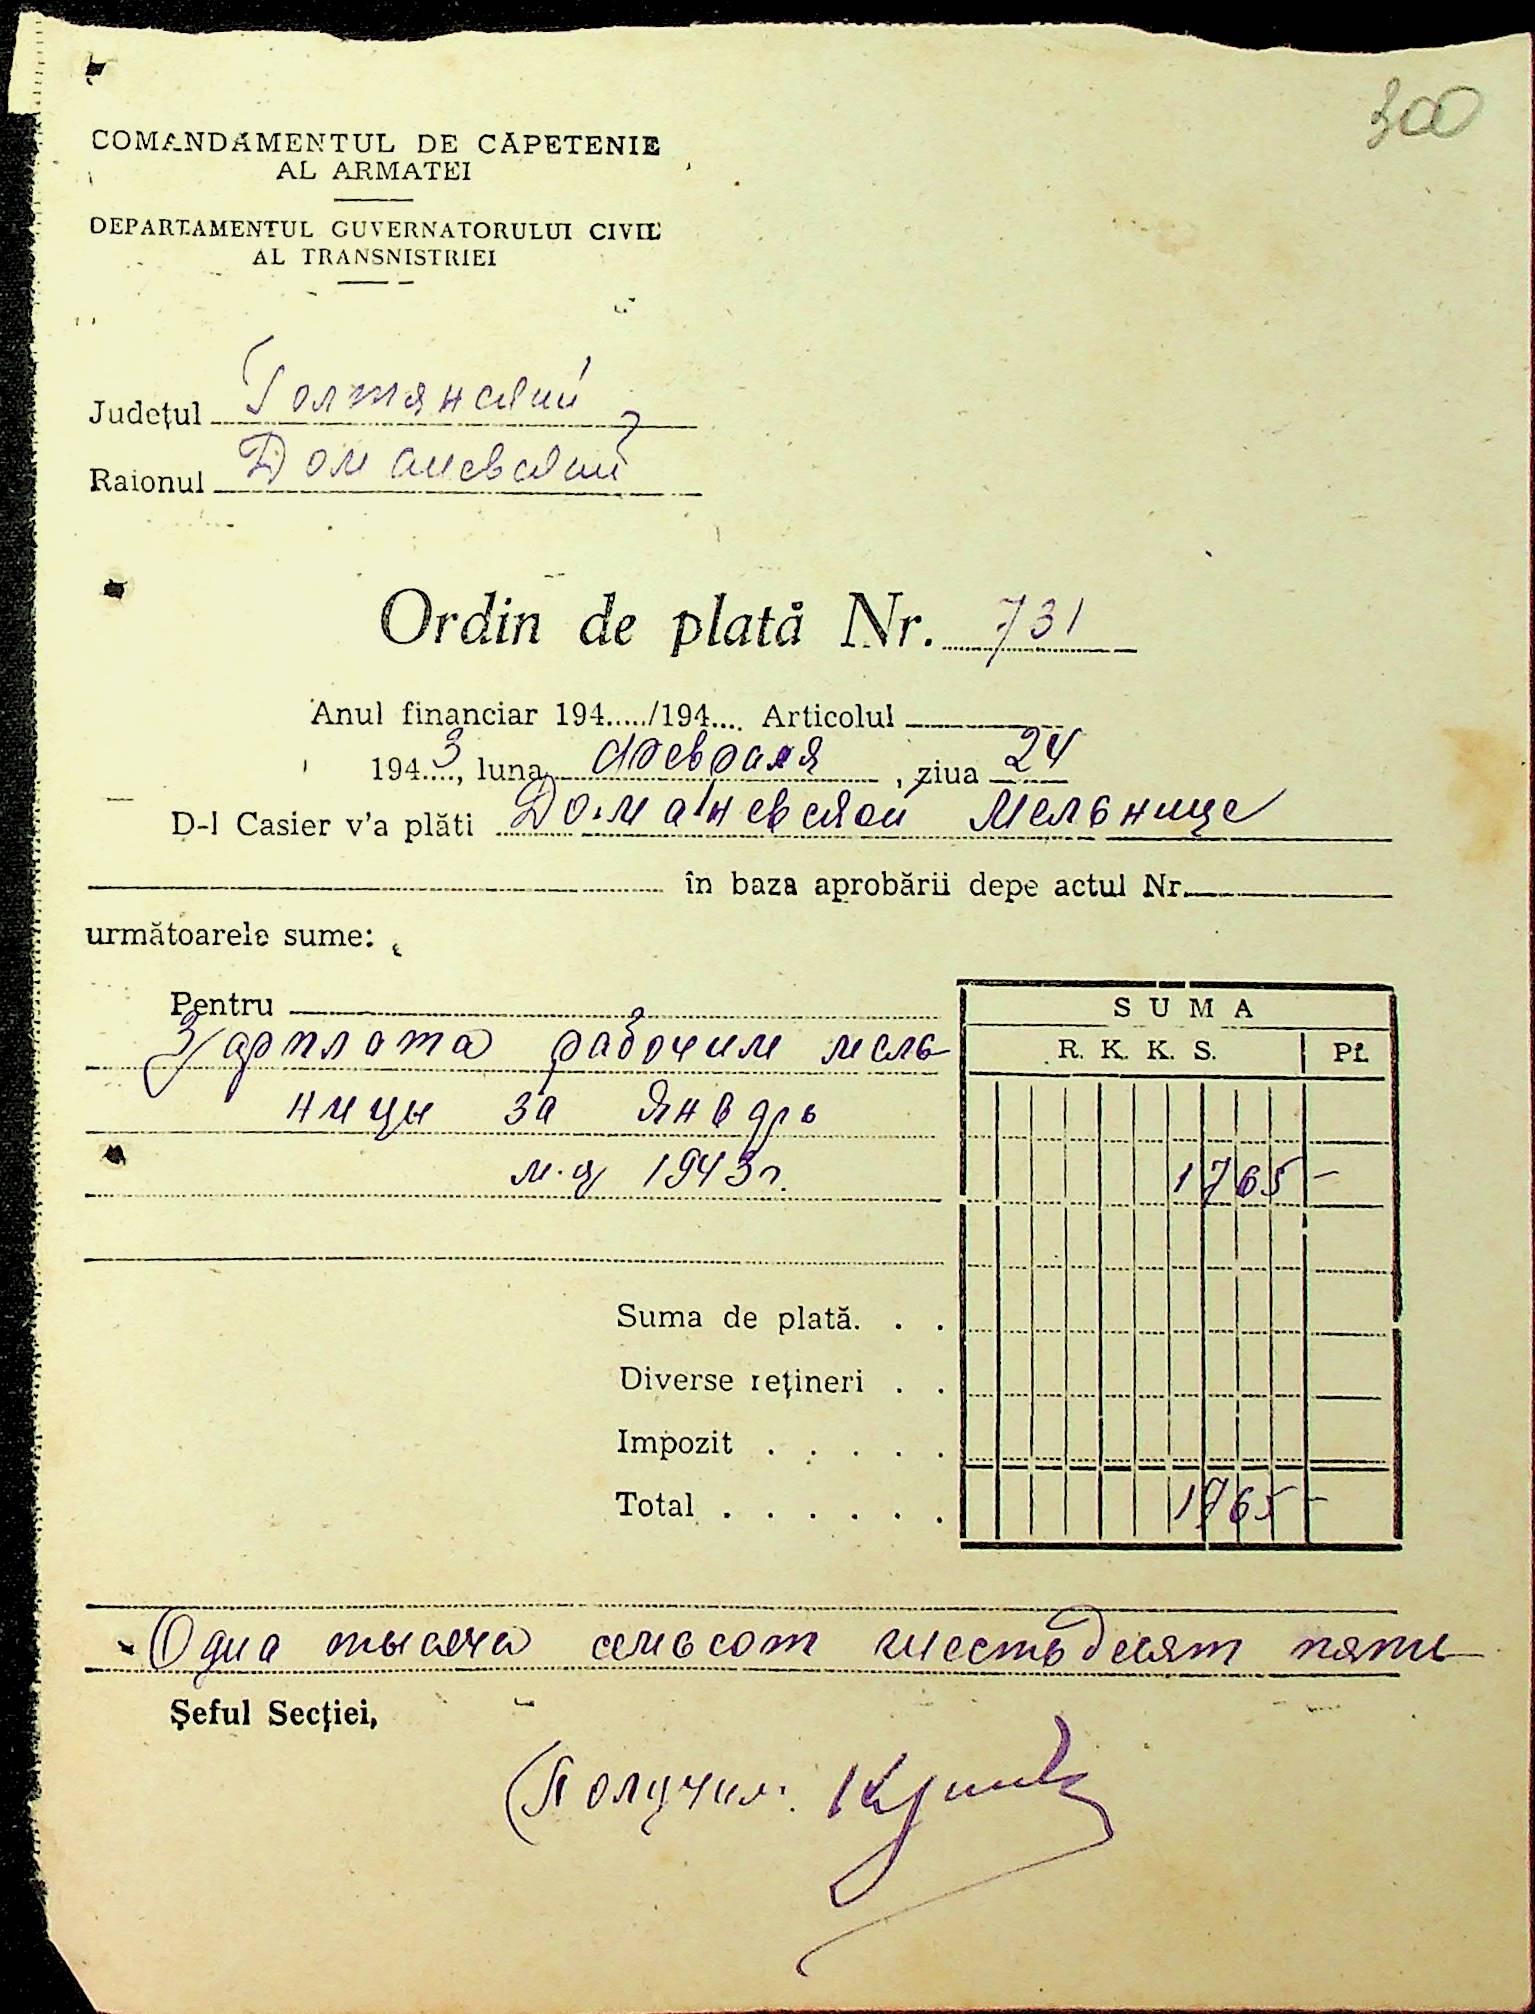 300
COMANDAMENTUL DE CĂPETENIE
AL ARMATEI
DEPARTAMENTUL GUVERNATORULUI CIVIL
AL TRANSNISTRIEI
Județul Голтянский
Raionul Доманевский
Ordin de plată Nr. 731
Anul financiar 194...../194.... Articolul
194 3, luna февраля, ziua 24
D-l Casier v'a plăti Доманевской Мельнице
în baza aprobării depe actul Nr.
următoarele sume:
Pentru
SUMA
R. K. K. S. Pf.
Зарплата рабочим мель-
ницы за январь
м-ц 1943 г. 1765 -
Suma de plată. . .
Diverse rețineri . .
Impozit . . . . .
Total . . . . . . 1765 -
Одна тысяча семьсот шестьдесят пять
Șeful Secției,
Получил: